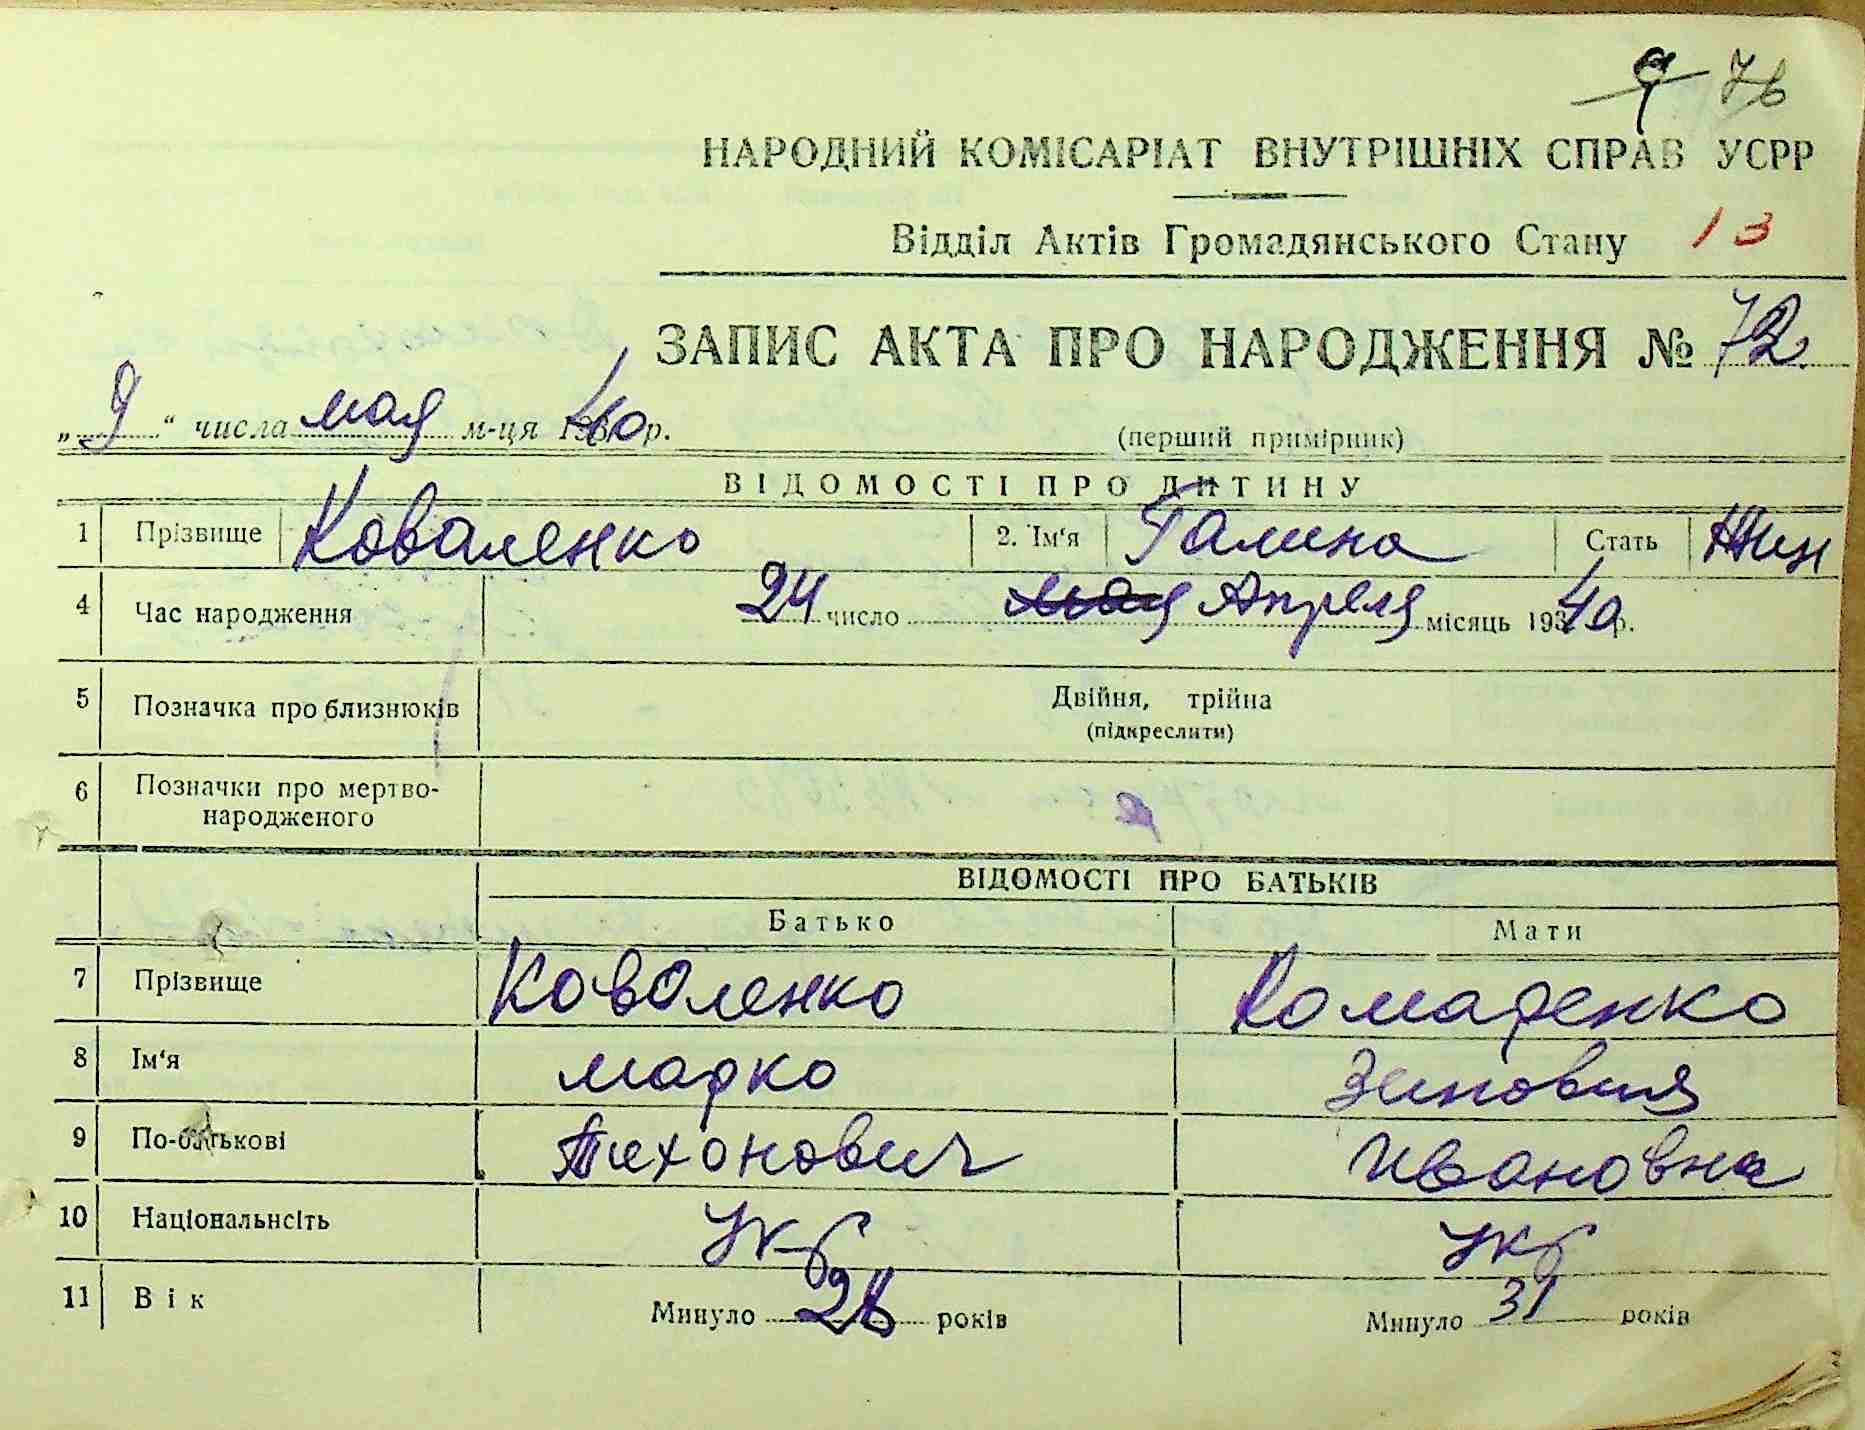 9 76
НАРОДНИЙ КОМІСАРІАТ ВНУТРІШНІХ СПРАВ УСРР
Відділ Актів Громадянського Стану 13
ЗАПИС АКТА ПРО НАРОДЖЕННЯ № 72
„ 9 “ числа мая м-ця 1940 р.
(перший примірник)
ВІДОМОСТІ ПРО ДИТИНУ
1 Прізвище Коваленко 2. Ім'я Галина Стать Жин
4 Час народження 24 число мая Апреля місяць 1940 р.
5 Позначка про близнюків Двійня, трійна
(підкреслити)
6 Позначки про мертво-
народженого
ВІДОМОСТІ ПРО БАТЬКІВ
Батько Мати
7 Прізвище Коваленко Комаренко
8 Ім'я Марко Зиновия
9 По-батькові Тихонович Ивановна
10 Національнсіть Укр Укр
11 Вік Минуло років Минуло 31 років